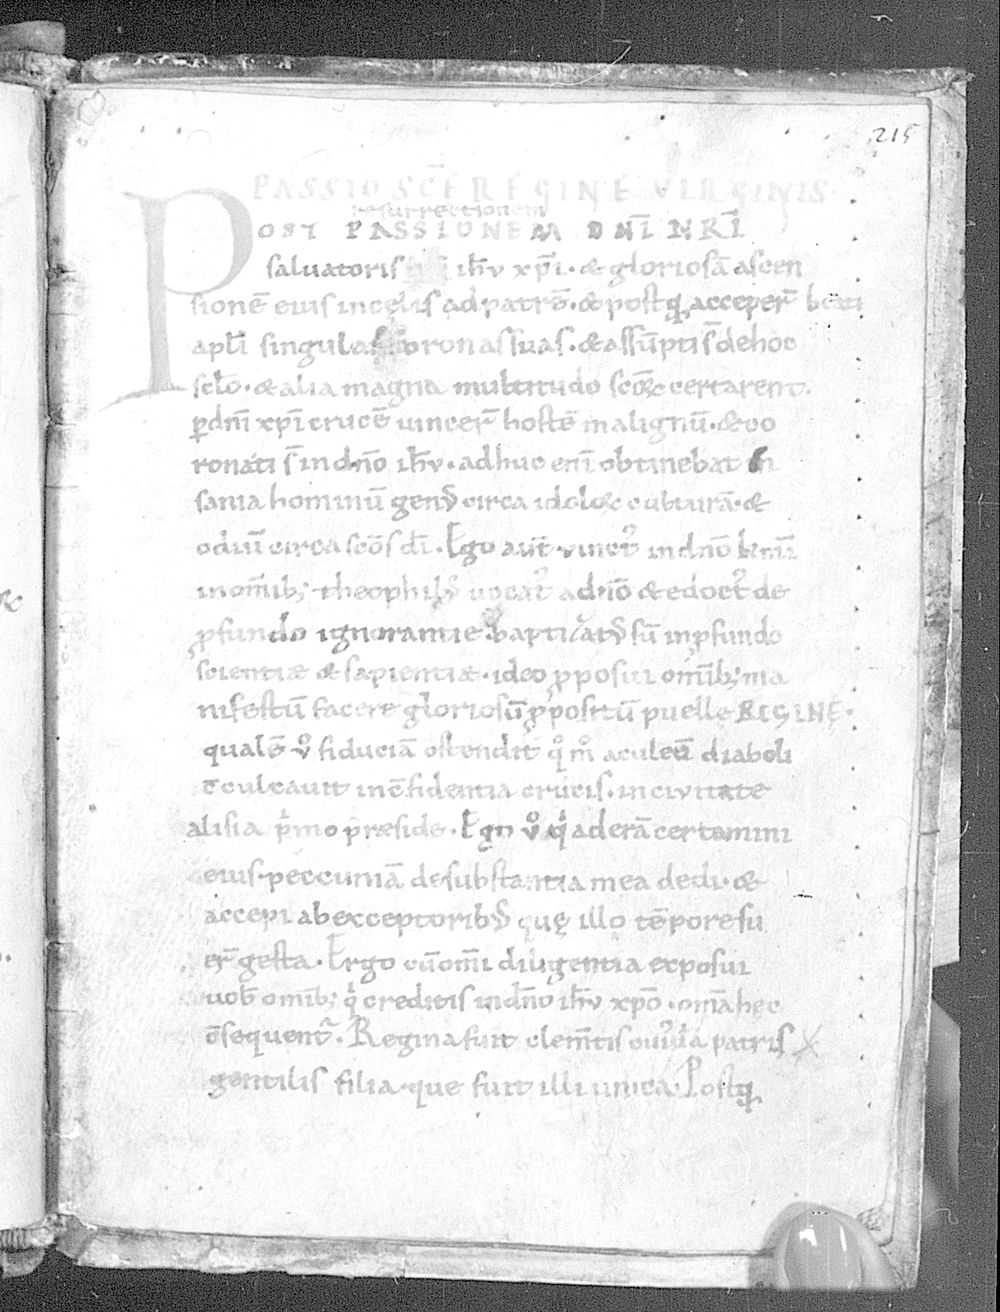 215
PASSIO SCĒ REGINE VIRGINIS
resurrectionem
POST PASSIONEM DN̄I NR̄I
saluatoris ih̄v xp̄i · & gloriosā ascen
sionē eius in cęlis ad patrē · & postꝗ acceper̄ beati
apl̄i singulas coronas suas · & assūpti s̄ de hoc
scl̄o · & alia magna multitudo scōꝝ certarent
ꝑ dn̄i xp̄i crucē uincer̄ hostē malignū · & co
ronati s̄ in dn̄o ih̄v · adhuc eni̅ obtinebat in
sania hominū gen᷒ circa idoloꝝ culturā · &
odiū circa scōs dī · Ego aut̄ uinct᷒ in dn̄o
in om̄ib; theophil᷒ uocat᷒ ad dn̄o & edoct᷒ de
ꝓfundo ignorantie baptizat᷒ sū in ꝓfundo
scientiæ & sapientiæ · ideo ꝓposui om̄ib; ma
nifestū facere gloriosū ꝓpositū puelle REGINE ·
qualē v̊ fiduciā ostendit qͦmͦ aculeū diaboli
c̄culcauit in c̄fidentia crucis · in civitate
alisia p̍mo præside · Ego v̊ q̍ aderā certamini
eius peccuniā de substantia mea dedi · &
accepi ab exceptorib᷒ quę illo tēpore fu
er̄ gesta · Ergo cū om̄i diligentia exposui
uob̄ om̄ib; q̍ creditis in dn̄o ih̄v xp̄o · om̄a hec
c̄sequent᷑ · Regina fuit clem̄tis cuiᵈā patris
gentilis filia · que fuit illi unica · Postꝗ